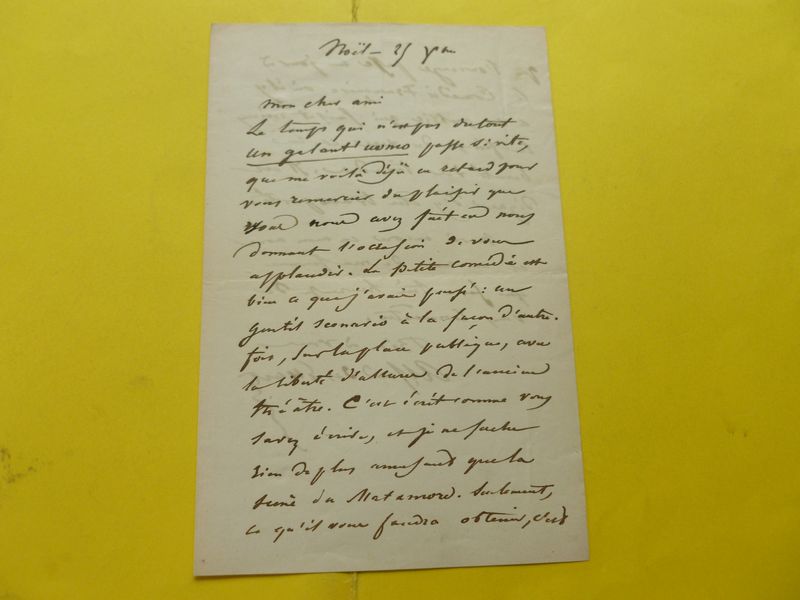 Noël - 25 Xbre
Mon cher ami
Le temps qui n'est pas du tout
un galant'uomo passe si vite,
que me voilà déjà en retard pour
vous remercier du plaisir que
vous nous avez fait en nous
donnant l'occasion de vous
applaudir. La petite comédie est
bien ce que j'avais pensé : un
gentil scenario à la façon d'autre-
fois, sur la place publique, avec
la liberté d'allures de l'ancien
théâtre. C'est écrit comme vous
savez écrire, et je ne sache
rien de plus amusant que la
scène du Matamore. Seulement,
ce qu'il vous faudra obtenir, c'est